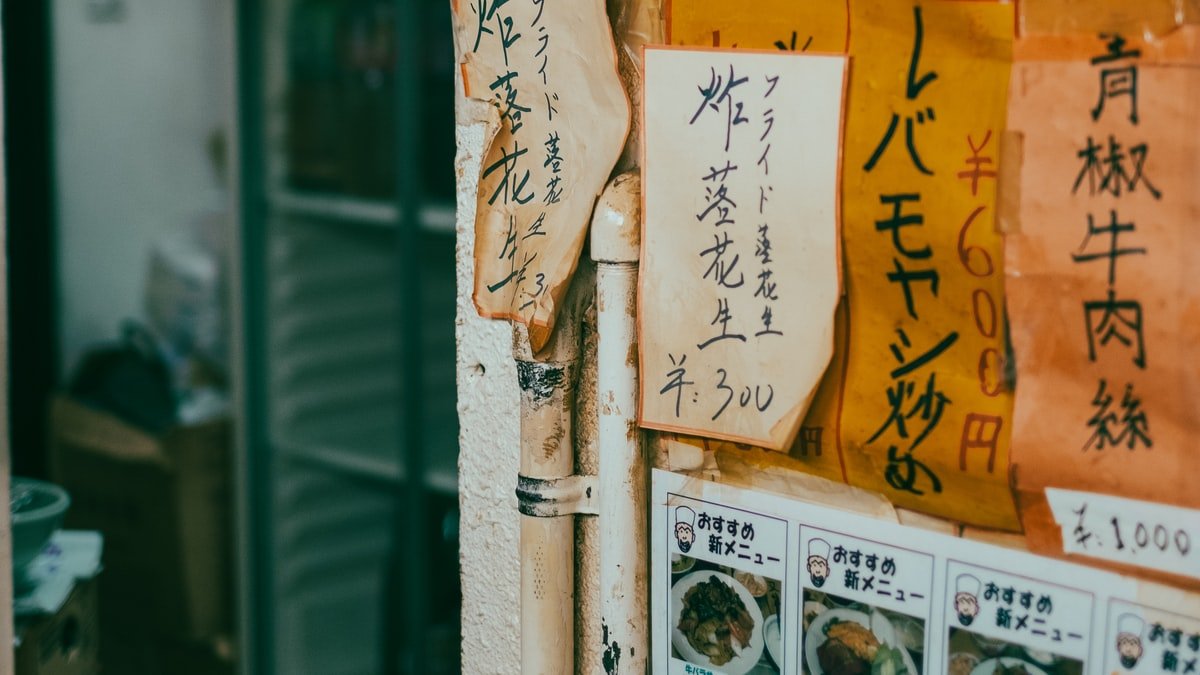 青椒牛肉絲
¥:1,000
レバモヤシ炒め
¥600円
フライド落花生
炸落花生
¥:300
フライド落花生
炸落花生
おすすめ
新メニュー
おすすめ
新メニュー
おすすめ
新メニュー
おすすめ